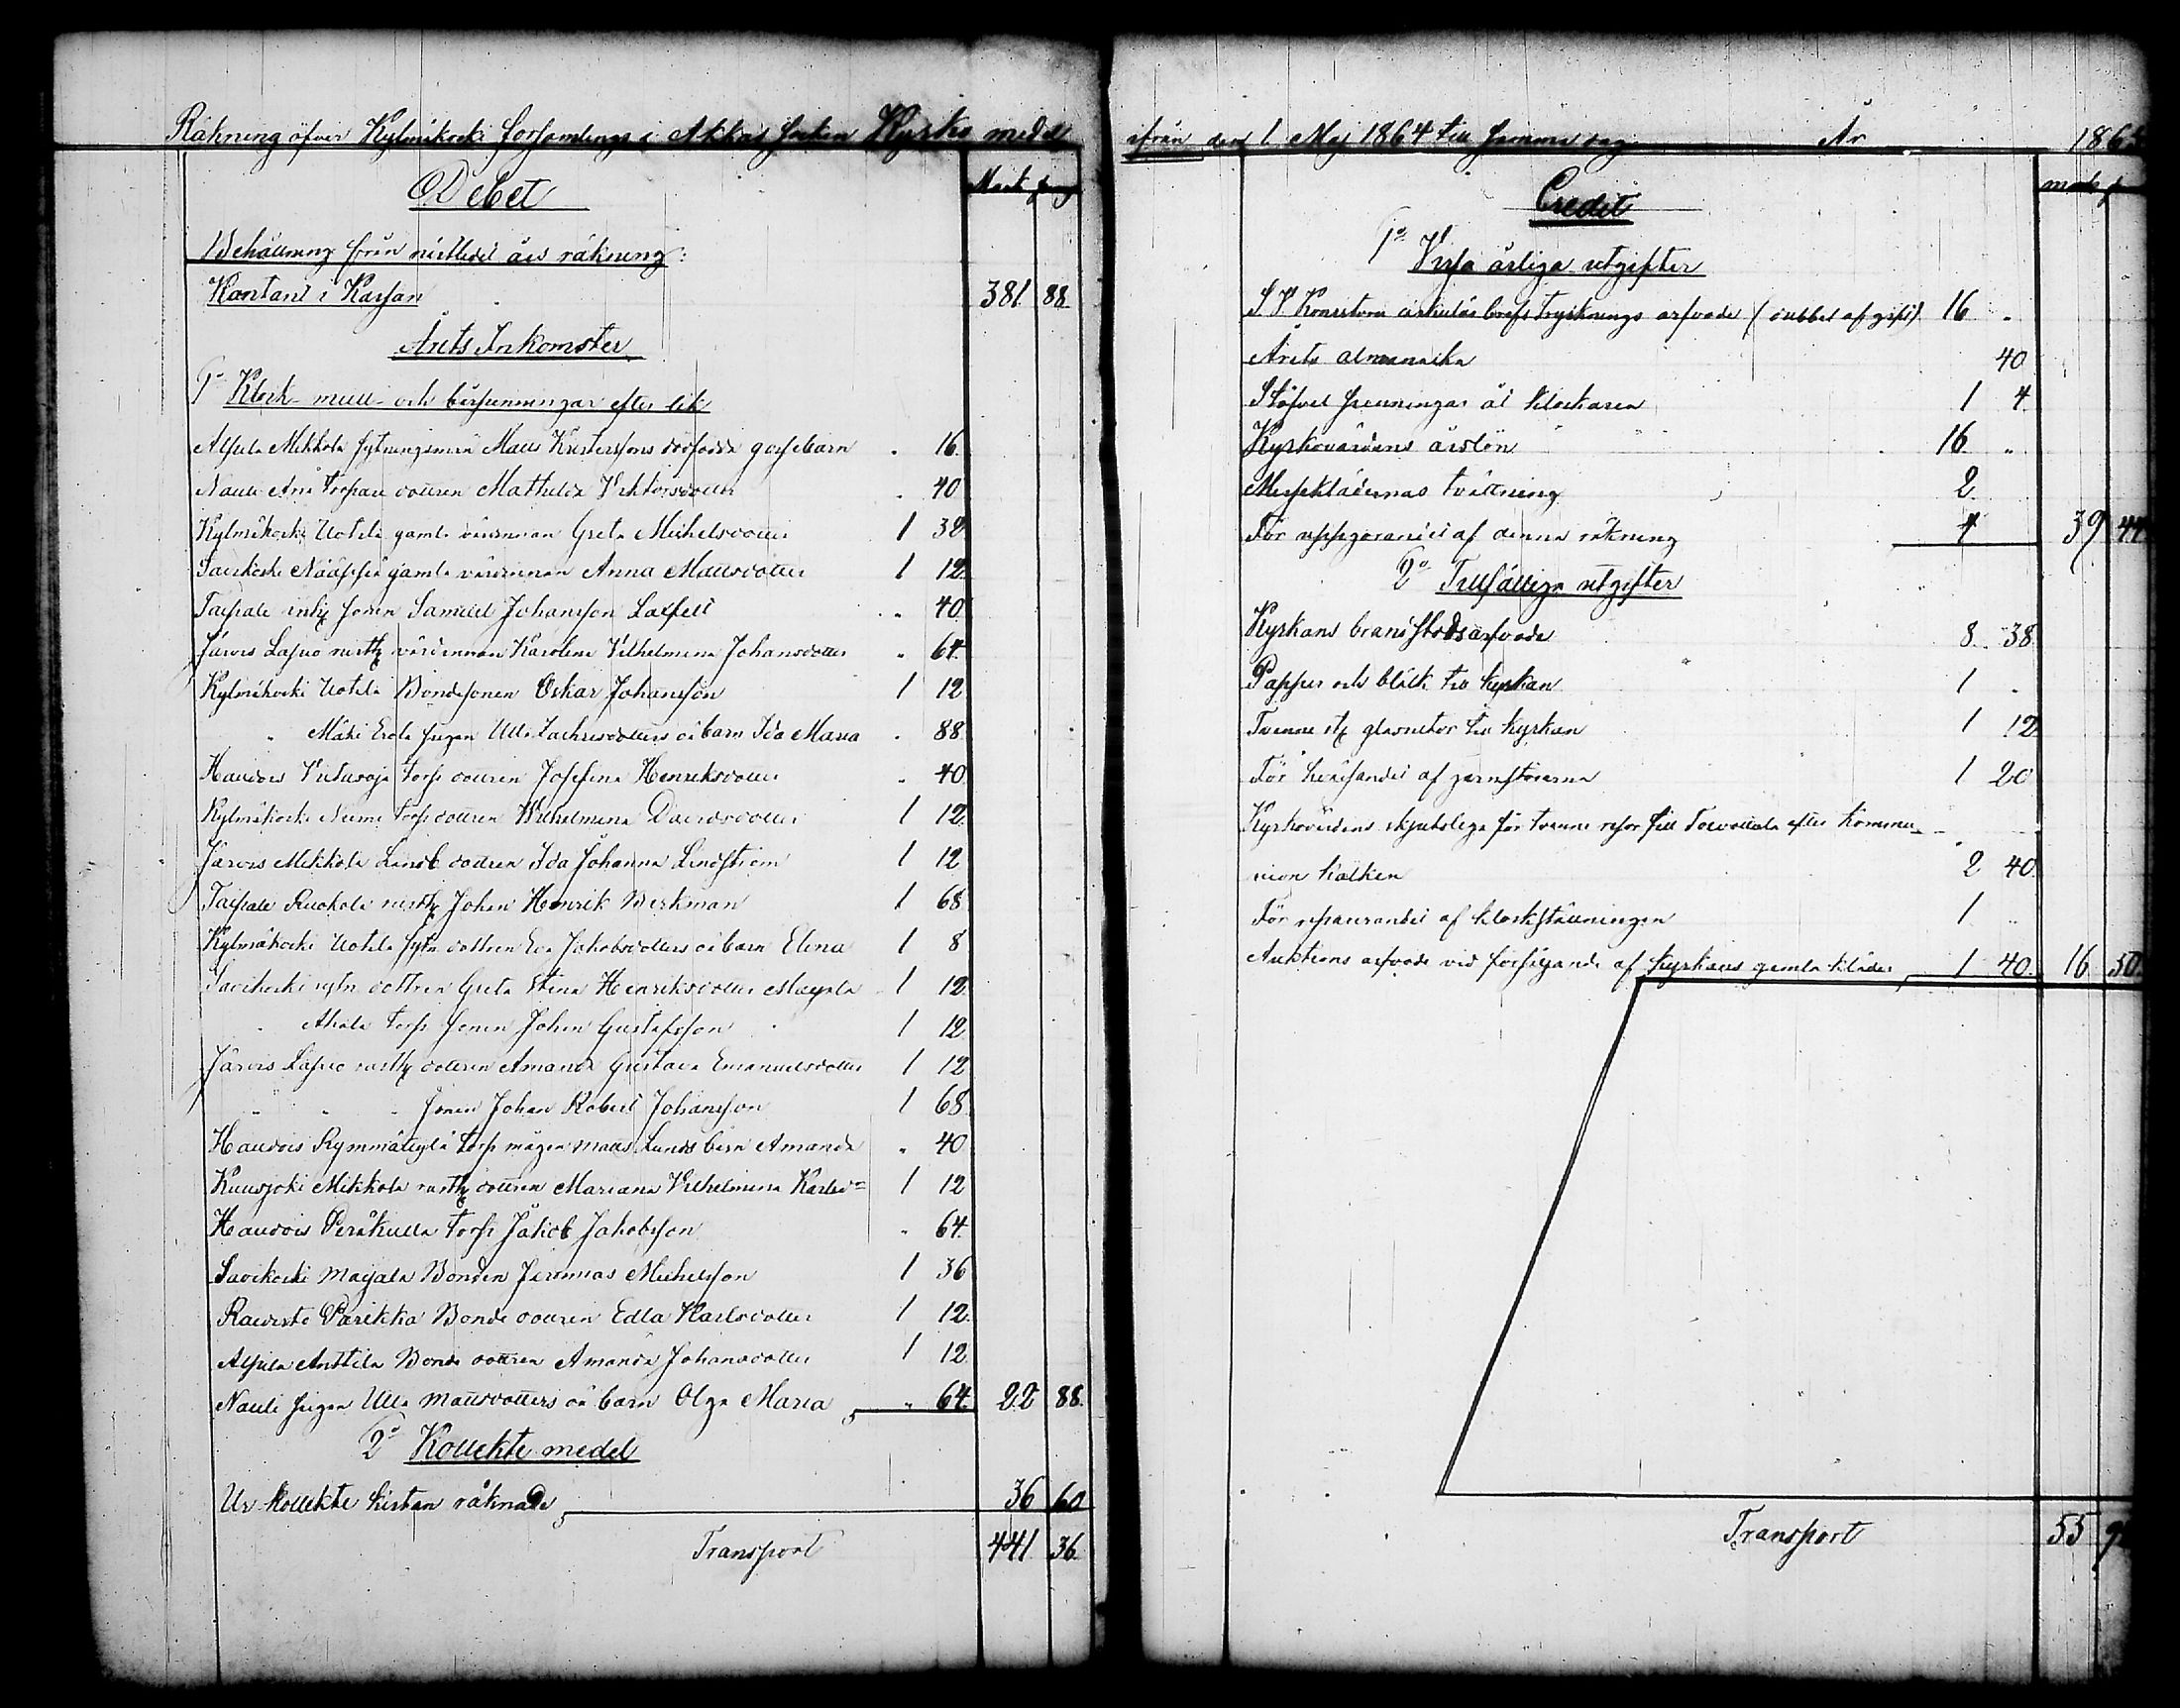 Räkning öfver Kylmäkoski församlings i Akkas socken Kyrko medel
Debet
Mark
Behållning från nästledet års räkning:
Kontant i Kassan 381 88
Årets Inkomster
1o Klock- mull- och bårpenningar efter lik
Alpila Mikkola sytningsman Matts Kristerssons dödfödda gossebarn " 16
Nauli torpare dottren Mathilda Viktorsdotter " 40
Kylmäkoski Uotila gamla värdinnan Greta Michelsdotter 1 32
Savikoski Nääppä gamla värdinnan Anna Mattsdotter 1 12
Taipale inh. sonen Samuel Johansson " 40
Järvis Lapuo rusth. värdinnan Karolina Vilhelmina Johansdotter " 64
Kylmäkoski Uotila Bondesonen Oskar Johansson 1 12
" Mäki Erola pigan Ulla oä barn Ida Maria " 88
Haudois torp dottren Josefina Henriksdotter " 40
Kylmäkoski Niemi torp dottren Wilhelmina Davidsdotter 1 12
Järvis Mikkola dottren Ida Johanna Lindström 1 12
Taipale Ruokola rusth. Johan Henrik Birkman 1 68
Kylmäkoski Uotila dottren Eva Jakobsdotters oä barn Elina 1 8
Savikoski dottren Greta Stina Henriksdotter Mayala 1 12
" Ahola torp sonen Johan Gustafsson 1 12
Järvis Lapuo rusth. dottren Amanda Gustava Emanuelsdotter 1 12
" " " sonen Johan Robert Johansson 1 68
Haudois torp mågen Matts Lunds barn Amanda " 40
Kuusjoki Mikkola rusth. dottren Mariana Vilhelmina Karlsdr 1 12
Haudois Peräkulla torp Jakob Jakobsson " 64
Savikoski Mayala Bonden Jeremias Michelsson 1 36
Raudisto Parikka Bonde dottren Edla Karlsdotter 1 12
Alpila Anttila Bonde dottren Amanda Johansdotter 1 12
Nauli pigan Ulla Mattsdotters oä barn Olga Maria " 64 22 88
2o Kollekte medel
Ur kollekte kistan räknade 36 60
Transport 441 36
ifrån den 1 Maj 1864 till samma dag År 186
Credit
mark
1o Vissa årliga utgifter
cirkulär brefs trycknings arfvode (dubbel afgift) 16 "
Årets almanacka 40
Stöfvel penningar åt klockaren 1 4
Kyrkovärdens årslön 16 "
Messeklädernas tvättning 2
För uppgörandet af denna räkning 4 39 44
2o Tillfälliga utgifter
Kyrkans brandstodsarfvode 8 38
Papper och bläck till kyrkan 1 "
Tvenne st. glasrutor till kyrkan 1 12
För af 1 20
Kyrkovärdens skjutslega för tvenne resor till efter kommu-
nion kalken 2 40
För reparerandet af klockställningen 1 "
Auktions arfvode vid försäljande af kyrkans gamla kläder 1 40 16 50
Transport 55 9